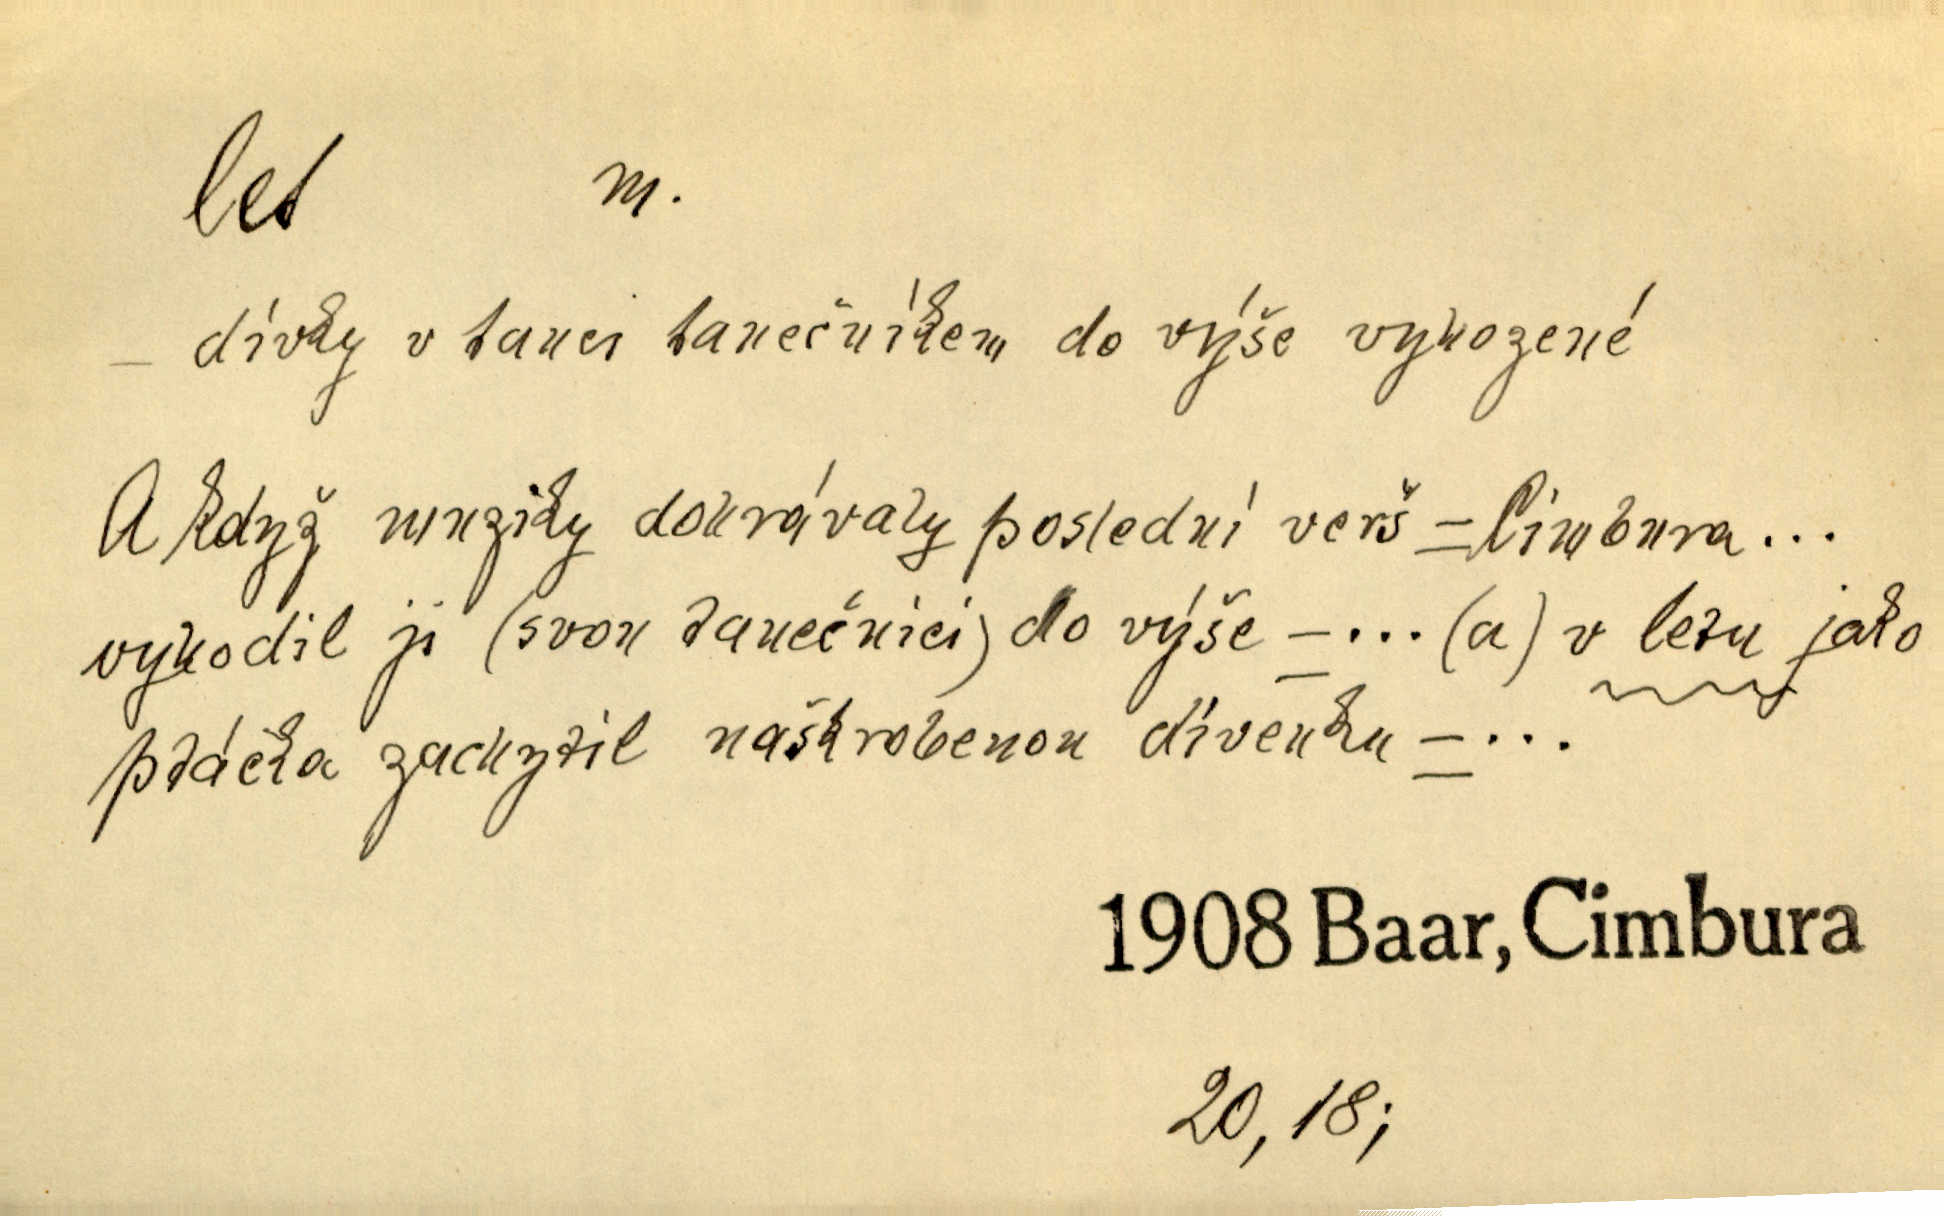 let m.
– dívky v tanci tanečníkem do výše vyhozené
A když muziky dohrávaly poslední verš = Cimbura...
vyhodil ji (svou tanečnici) do výše =... (a) v letu jako
ptáčka zachytil naškrobenou dívenku =...
1908 Baar, Cimbura
20, 18;